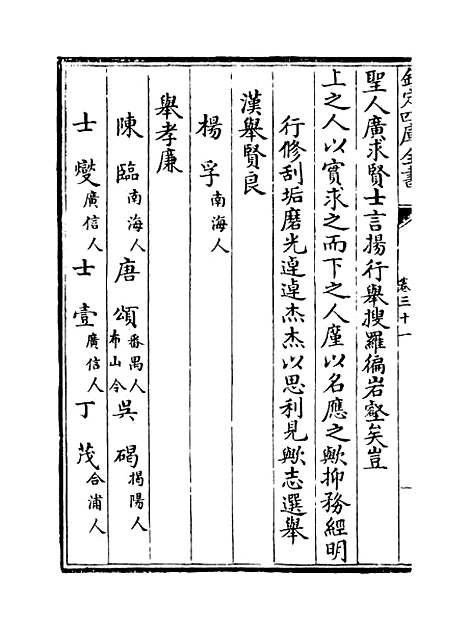 欽定四庫全書
卷三十一
聖人廣求賢士言揚行舉搜羅徧岩壑矣豈
上之人以實求之而下之人廑以名應之歟抑務經明
行修刮垢磨光逴逴杰杰以思利見歟志選舉
漢舉賢良
楊孚南海人
舉孝廉
陳臨南海人 唐頌番禺人布山令 吳碭揭陽人
士燮廣信人 士壹廣信人 丁茂合浦人